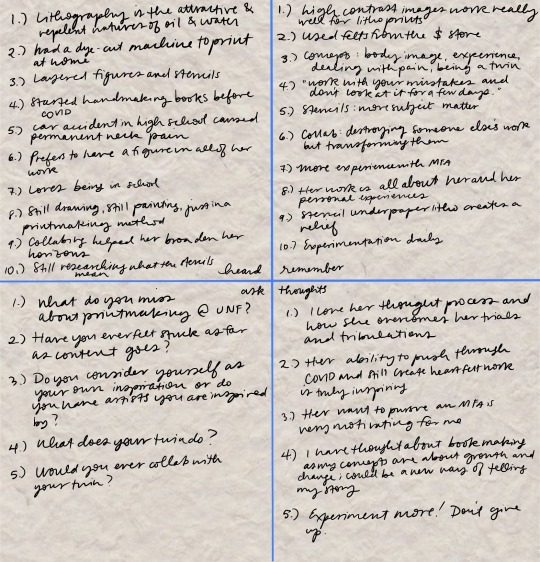 1.) Lithography is the attractive &
repelent natures of oil & water
2.) had a dye-cut machine to print
at home
3.) Layered figures and stencils
4.) Started handmaking books before
COVID
5.) car accident in high school caused
permanent neck pain
6.) Prefers to have a figure in all of her
work
7.) Loves being in school
8.) Still drawing, still painting, just in a
printmaking method
9.) Collabing helped her broaden her
horizons
10.) Still researching what the stencils
mean
heard
1.) high contrast images work really
well for litho prints
2.) Used felts from the $ store
3.) Concept: body image, experience,
dealing with pain, being a twin
4.) "work with your mistakes and
dont look at it for a few days."
5.) Stencils: more subject matter
6.) Collab: destroying someone else's work
but transforming them
7.) more experience with MFA
8.) Her work is all about her and her
personal experiences
9.) Stencil under paper litho creates a
relief
10.) Experimentation daily
remember
ask
1.) What do you miss
about printmaking @ UNF?
2.) Have you ever felt stuck as far
as content goes?
3.) Do you consider yourself as
your own inspiration or do
you have artists you are inspired
by?
4.) What does your twin do?
5.) Would you ever collab with
your twin?
thoughts
1.) I love her thought process and
how she overcomes her trials
and tribulations
2.) Her ability to push through
COVID and still create heartfelt work
is truly inspiring
3.) Her want to pursue an MFA is
very motivating for me
4.) I have thought about book making
as my concepts are about growth and
change, could be a new way of telling
my story
5.) Experiment more! Don't give
up.